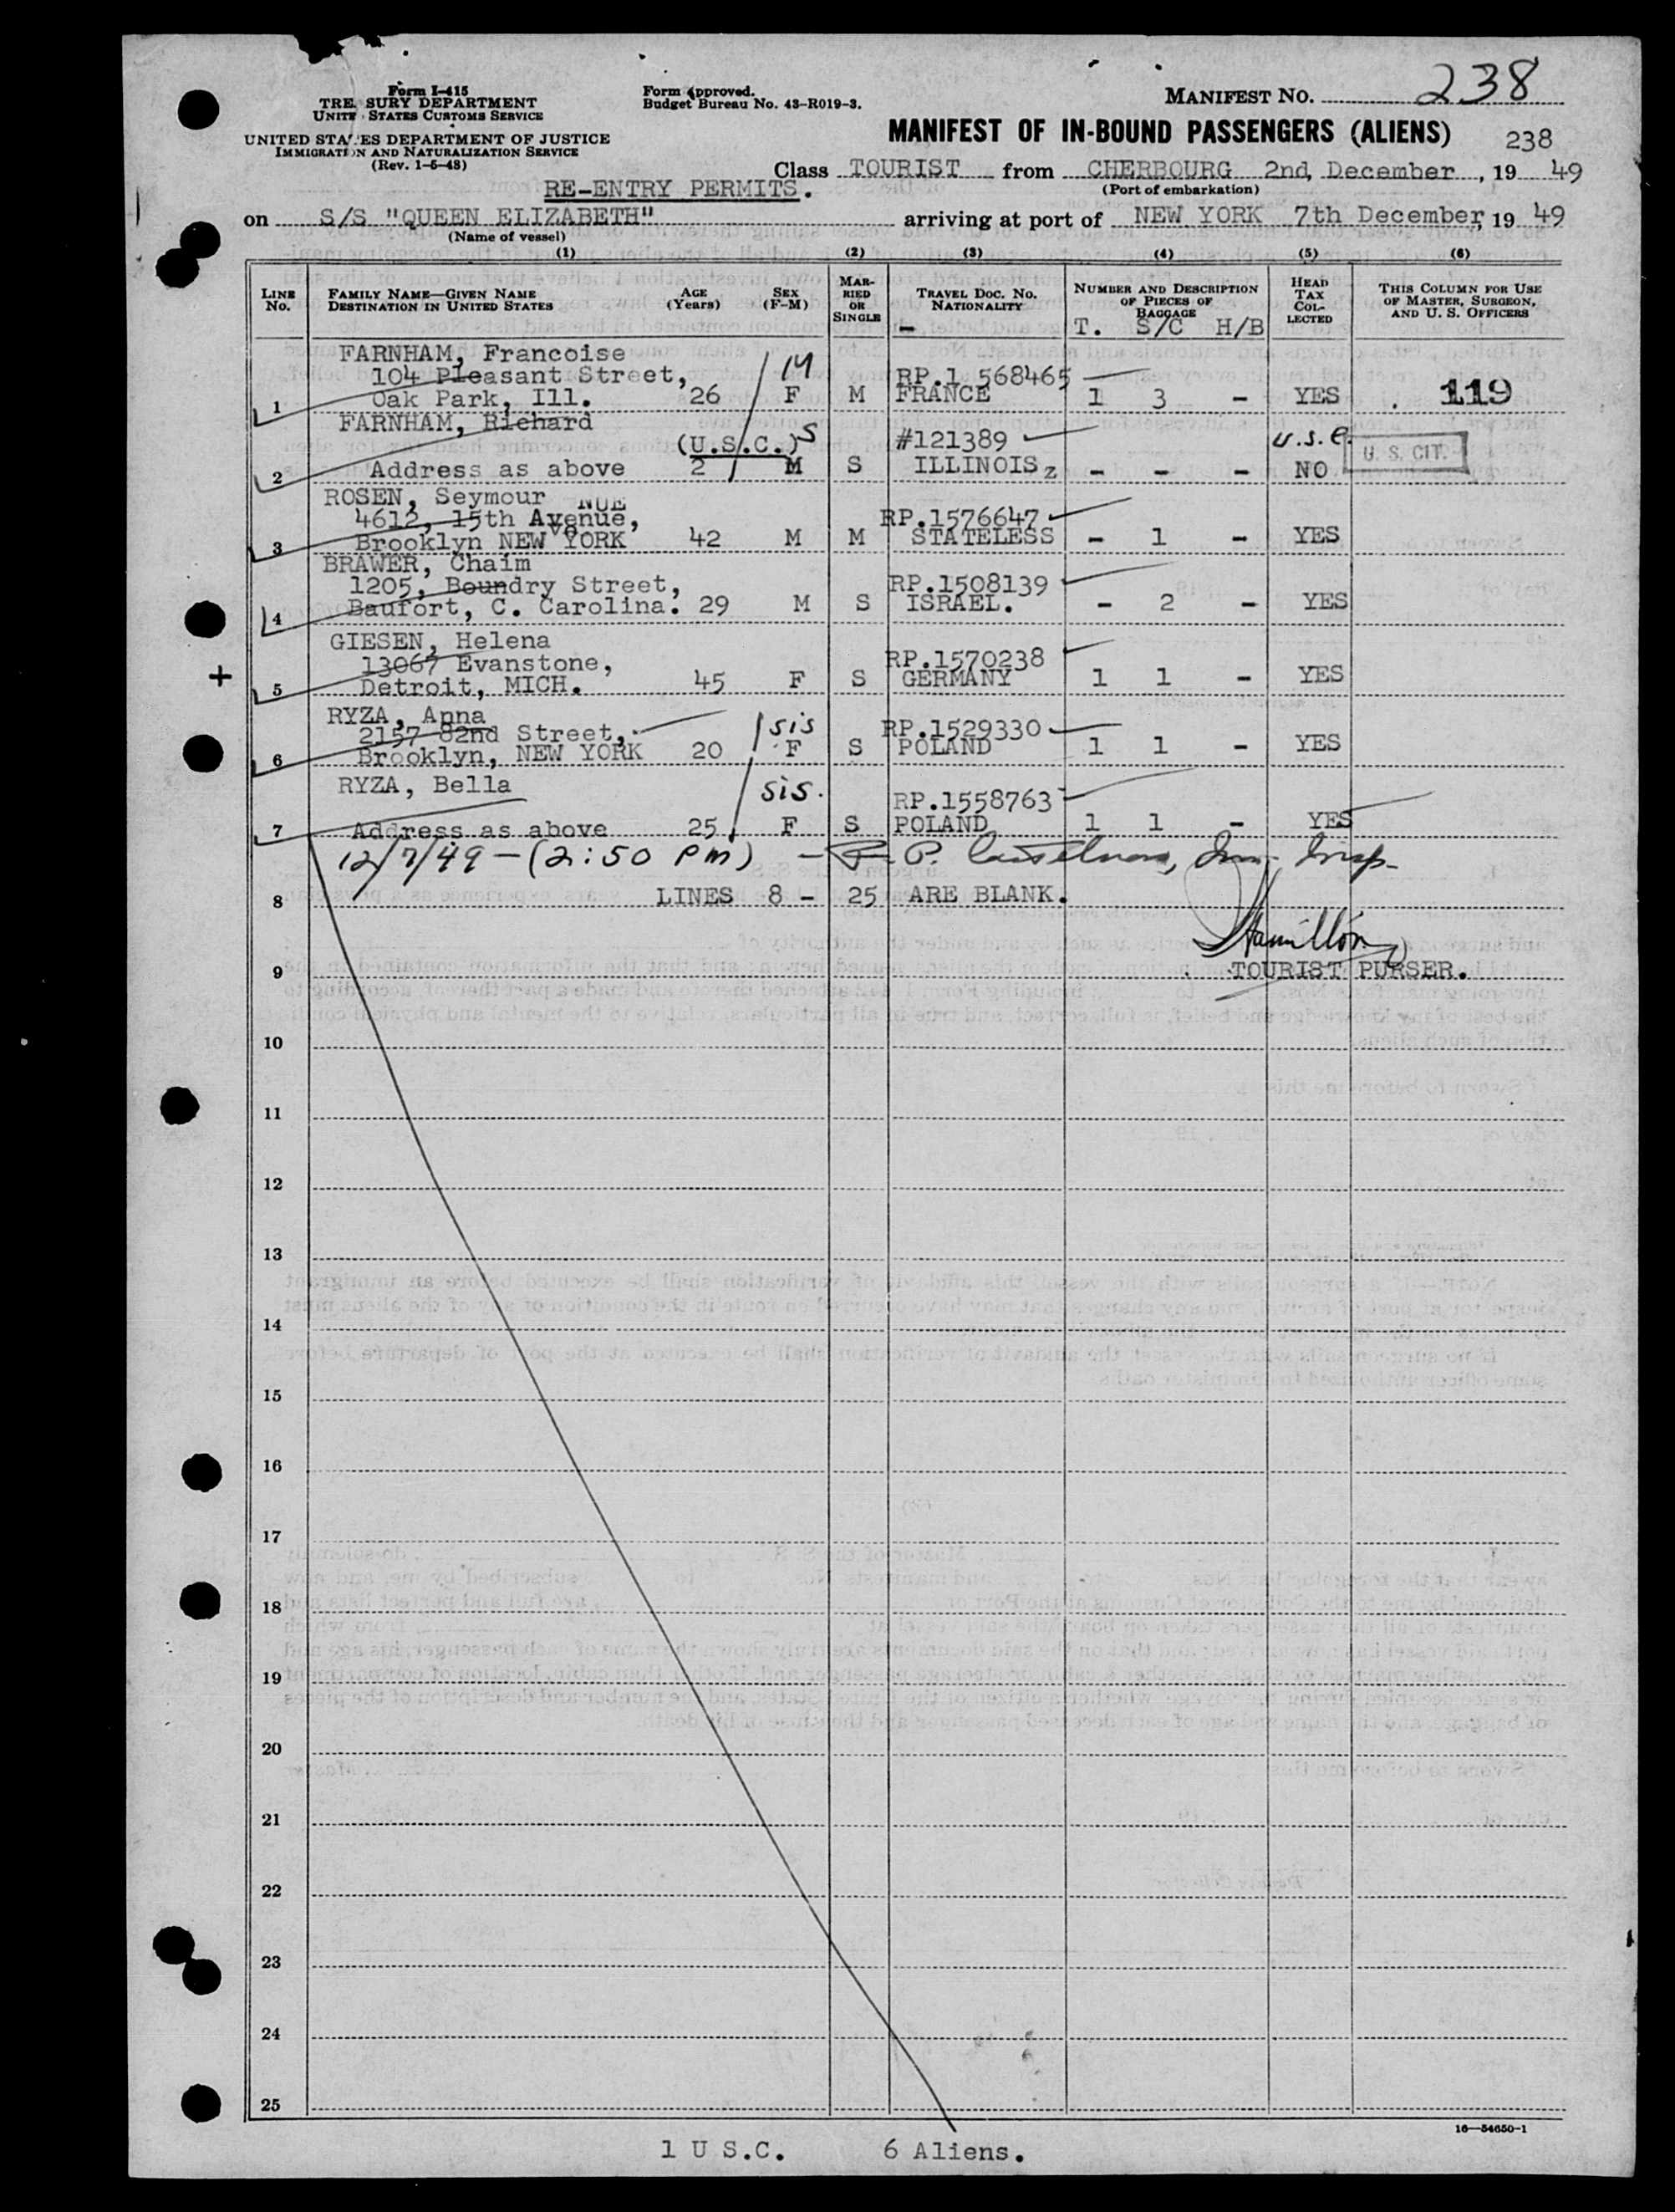 Form I-415
TRE SURY DEPARTMENT
UNITE STATES CUSTOMS SERVICE
UNITED STATES DEPARTMENT OF JUSTICE
IMMIGRATION AND NATURALIZATION SERVICE
(Rev. 1-5-48)
Form Approved.
Budget Bureau No. 43-R019-3.
MANIFEST NO. 238
MANIFEST OF IN-BOUND PASSENGERS (ALIENS) 238
Class TOURIST from CHERBOURG 2nd, December, 19 49
(Port of embarkation)
RE-ENTRY PERMITS.
on S/S "QUEEN ELIZABETH" arriving at port of NEW YORK 7th December, 19 49
(Name of vessel)
(1) (2) (3) (4) (5) (6)
LINE No. FAMILY NAME—GIVEN NAME DESTINATION IN UNITED STATES AGE (Years) SEX (F-M) MARRIED OR SINGLE TRAVEL DOC. NO. NATIONALITY NUMBER AND DESCRIPTION OF PIECES OF BAGGAGE HEAD TAX COLLECTED THIS COLUMN FOR USE OF MASTER, SURGEON, AND U. S. OFFICERS
T. S/C H/B
FARNHAM, Francoise
104 Pleasant Street, M RP.1 568465
1 Oak Park, Ill. 26 F M FRANCE 1 3 - YES 119
FARNHAM, Richard
(U.S.C.) S #121389 U.S.C. U. S. CIT.
2 Address as above 2 M S ILLINOIS - - - NO
ROSEN, Seymour NUE
4612, 15th Avenue, RP.1576647
3 Brooklyn NEW YORK 42 M M STATELESS - 1 - YES
BRAWER, Chaim
1205, Boundry Street, RP.1508139
4 Baufort, C. Carolina. 29 M S ISRAEL. - 2 - YES
GIESEN, Helena
13067 Evanstone, RP.1570238
5 Detroit, MICH. 45 F S GERMANY 1 1 - YES
RYZA, Anna
2157 82nd Street, sis RP.1529330
6 Brooklyn, NEW YORK 20 F S POLAND 1 1 - YES
RYZA, Bella sis. RP.1558763
7 Address as above 25 F S POLAND 1 1 - YES
12/7/49 - (2:50 PM) - Imm. Insp.
8 LINES 8 - 25 ARE BLANK.
Hamilton
9 TOURIST PURSER.
10
11
12
13
14
15
16
17
18
19
20
21
22
23
24
25
16—54650-1
1 U S.C. 6 Aliens.